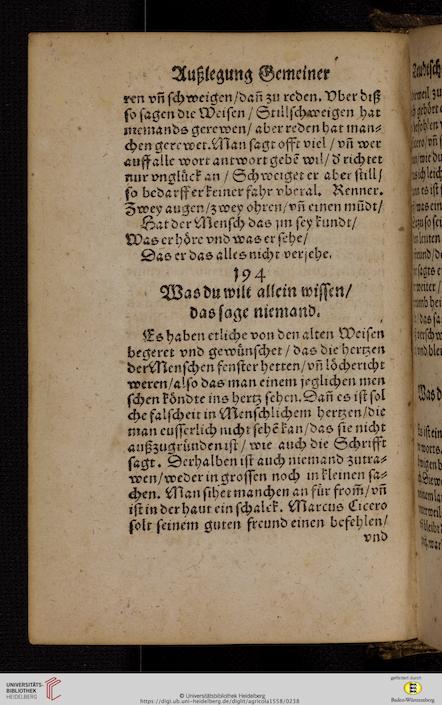 Außlegung Gemeiner
ren vñ schweigen/dañ zu reden. Vber diß
so sagen die Weisen / Stillschweigen hat
niemands gerewen/ aber reden hat man⸗
chen gerewet. Man sagt offt viel / vñ wer
auff alle wort antwort gebē wil/ d richtet
nur vnglück an / Schweiget er aber still/
so bedarff er keiner fahr vberal. Renner.
Zwey augen/zwey ohren/vñ einen mūdt/
Hat der Mensch das jm sey kundt/
Was er höre vnd was er sehe/
Das er das alles nicht verjehe.
194
Was du wilt allein wissen/
das sage niemand.
Es haben etliche von den alten Weisen
begeret vnd gewünschet / das die hertzen
der Menschen fenster hetten/vñ löchericht
weren/also das man einem jeglichen men
schen köndte ins hertz sehen. Dañ es ist sol
che falscheit in Menschlichem hertzen/die
man eusserlich nicht sehē kan/das sie nicht
außzugründen ist / wie auch die Schrifft
sagt. Derhalben ist auch niemand zutra⸗
wen/weder in grossen noch in kleinen sa⸗
chen. Man sihet manchen an für from̄/vñ
ist in der haut ein schalck. Marcus Cicero
solt seinem guten freund einen befehlen/
vnd
UNIVERSITÄTS-
BIBLIOTHEK
HEIDELBERG
© Universitätsbibliothek Heidelberg
https://digi.ub.uni-heidelberg.de/diglit/agricola1558/0238
gefördert durch
Baden-Württemberg